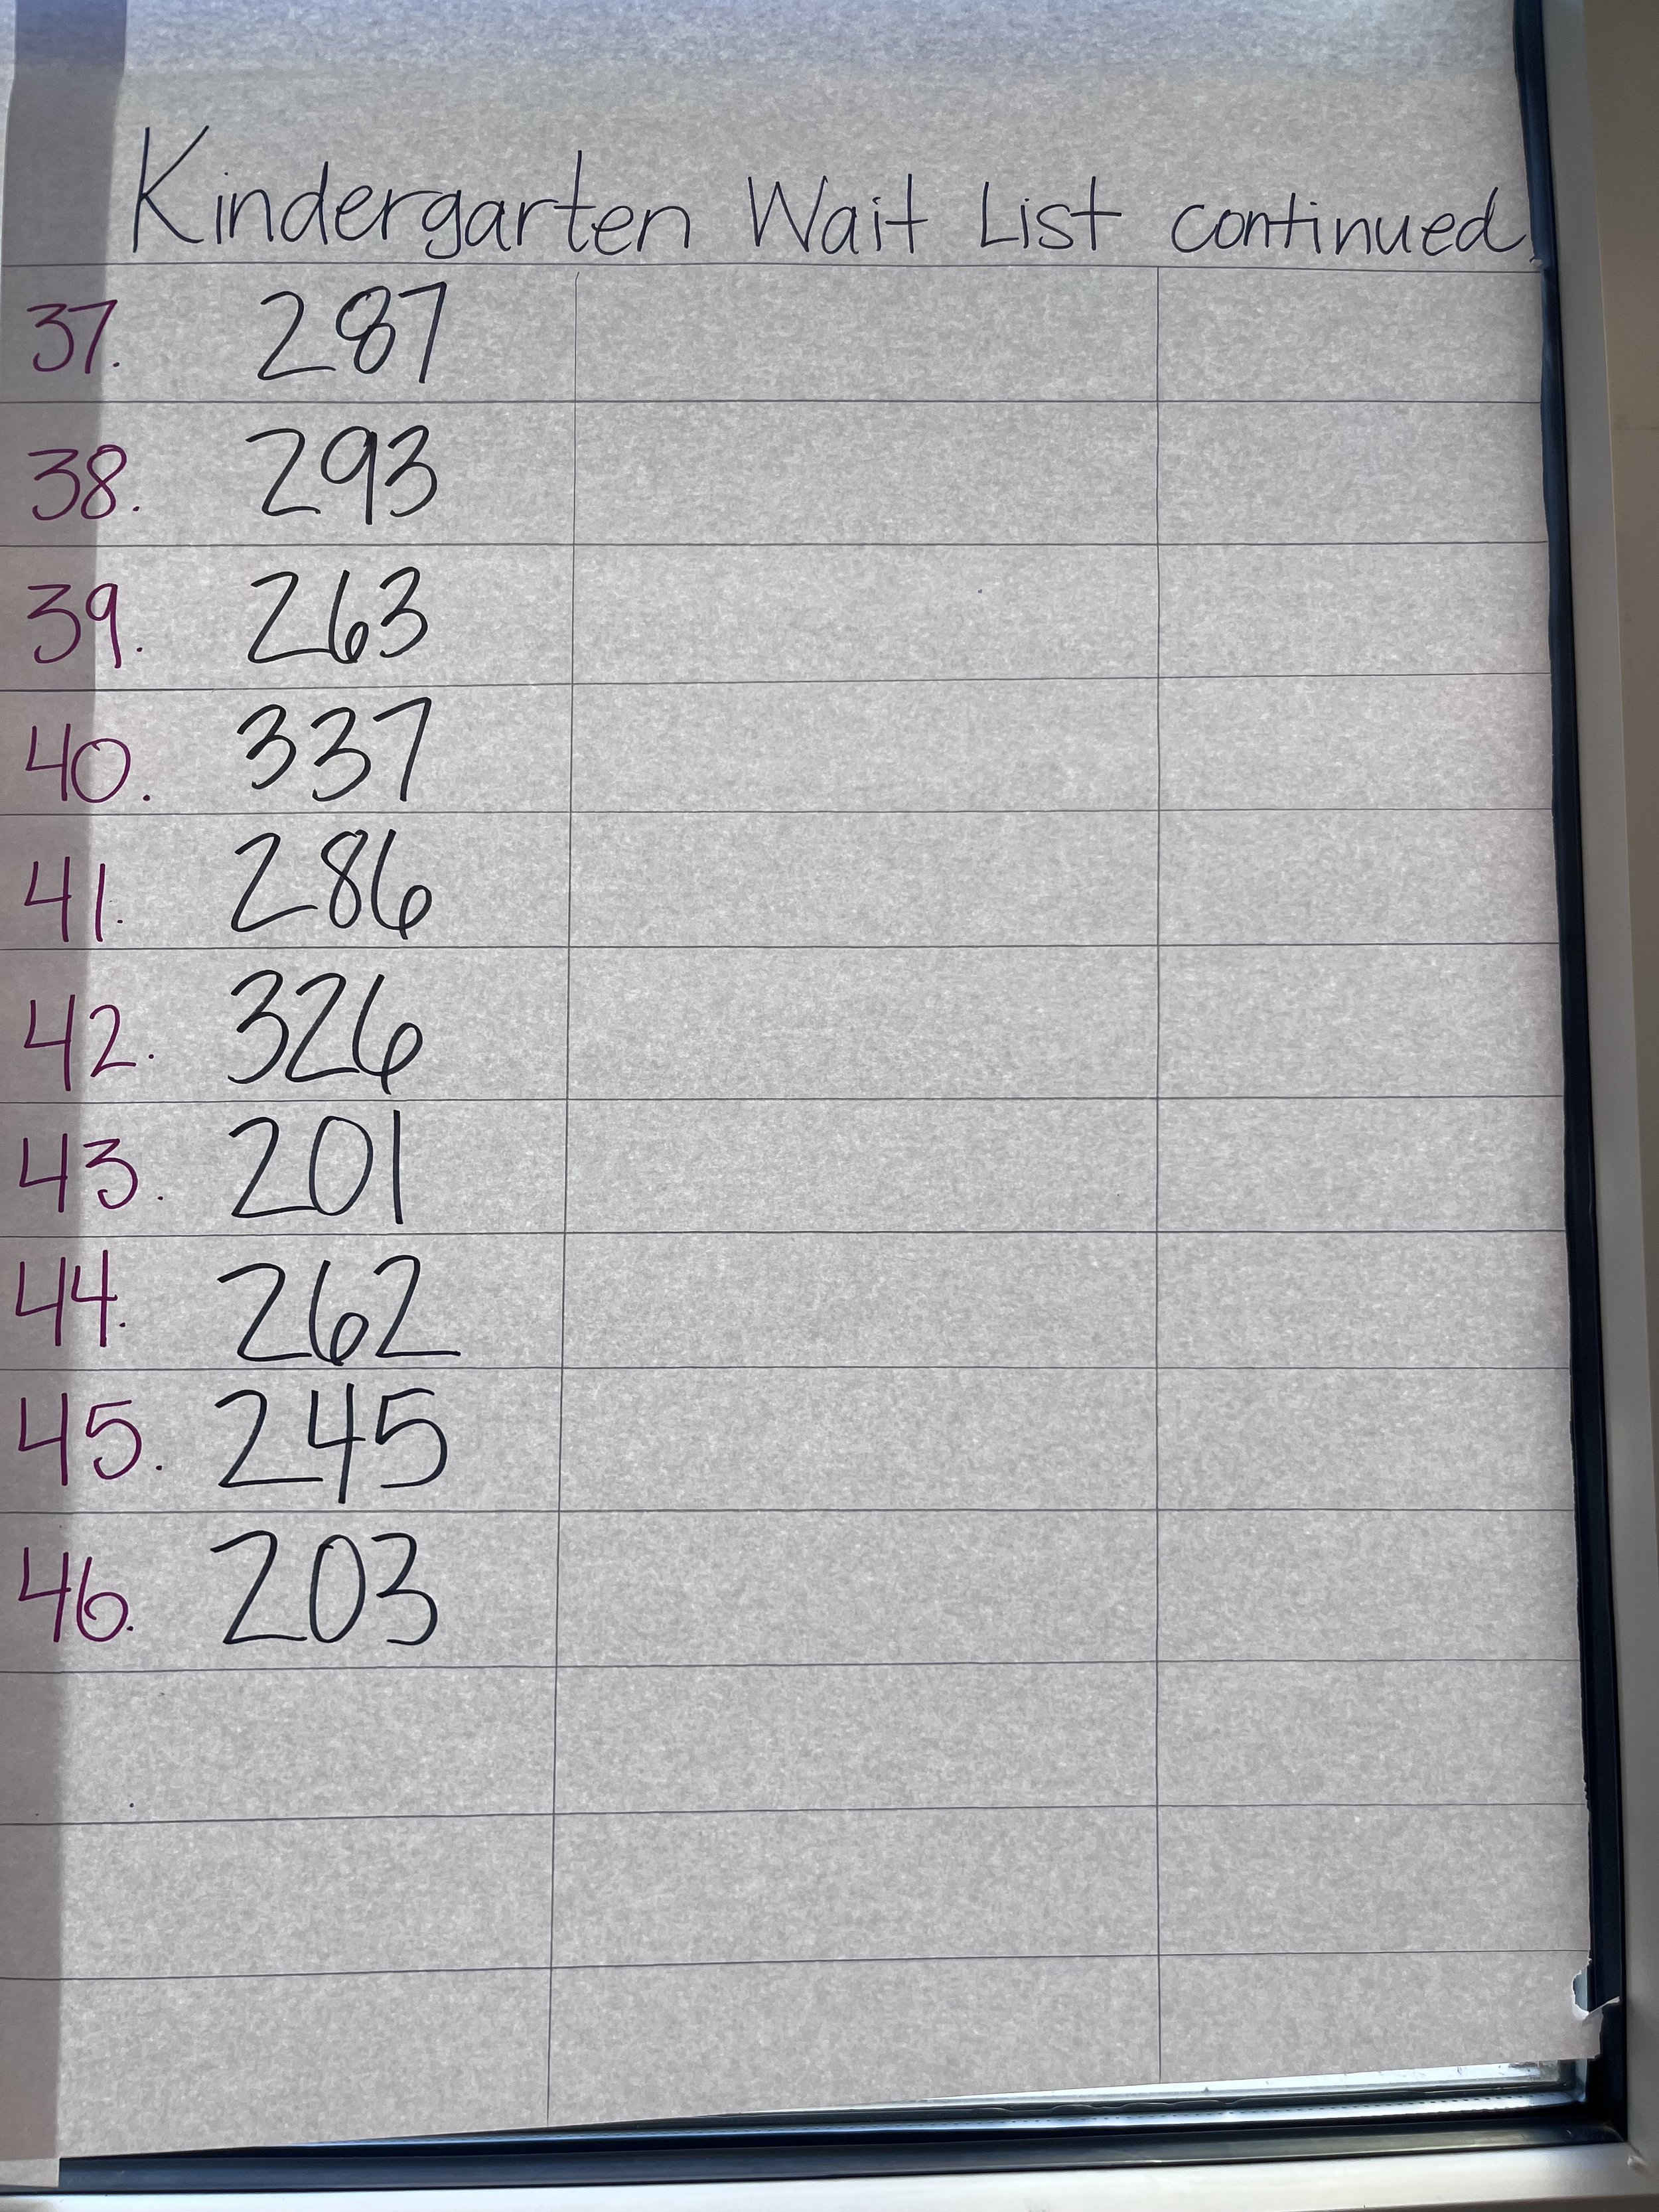 Kindergarten Wait List continued
37. 287
38. 293
39. 263
40. 337
41. 286
42. 326
43. 201
44. 262
45. 245
46. 203